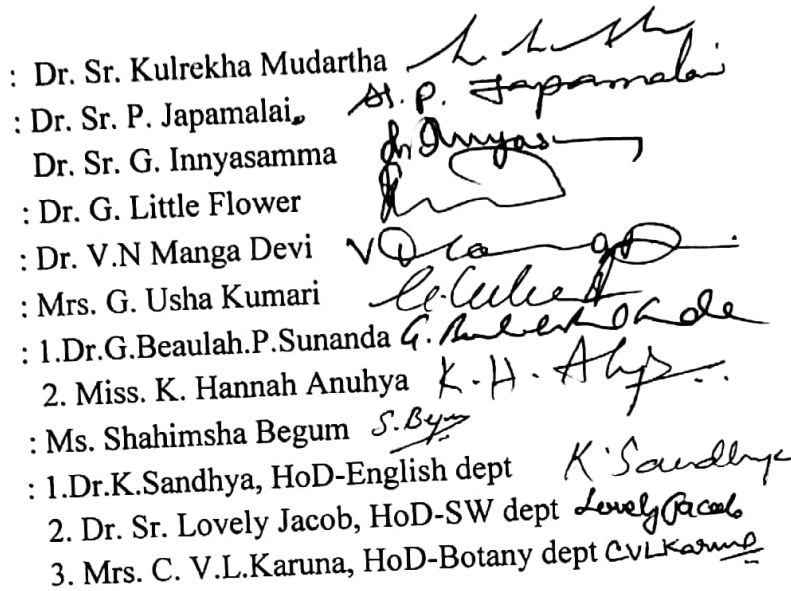 : Dr. Sr. Kulrekha Mudartha
: Dr. Sr. P. Japamalai. Sr. P. Japamalai
Dr. Sr. G. Innyasamma
: Dr. G. Little Flower
: Dr. V.N Manga Devi
: Mrs. G. Usha Kumari
: 1.Dr.G.Beaulah.P.Sunanda
2. Miss. K. Hannah Anuhya K. H.
: Ms. Shahimsha Begum S. Begum
: 1.Dr.K.Sandhya, HoD-English dept K. Sandhya
2. Dr. Sr. Lovely Jacob, HoD-SW dept Lovely Jacob
3. Mrs. C. V.L.Karuna, HoD-Botany dept CVLKaruna